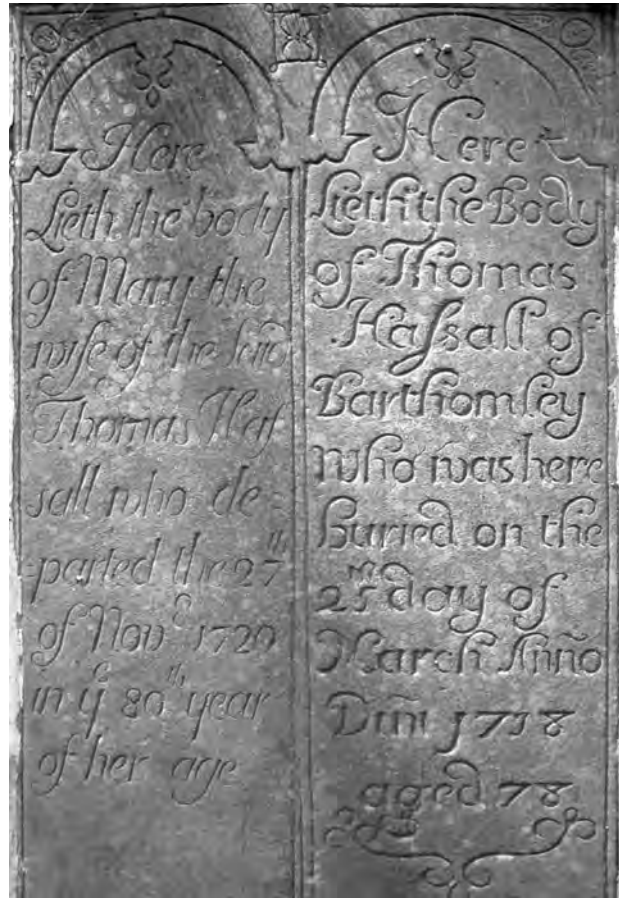 Here
Lieth the body
of Mary the
wife of the sᵈ
Thomas Haſ
sall who de=
=parted the 27ᵗʰ
of Novᵉ 1729
in yᵉ 80ᵗʰ year
of her age
Here
Lieth the Body
of Thomas
Haſsall of
Barthomley
who was here
buried on the
day of
March Anño
Dm̃i 1718
aged 78